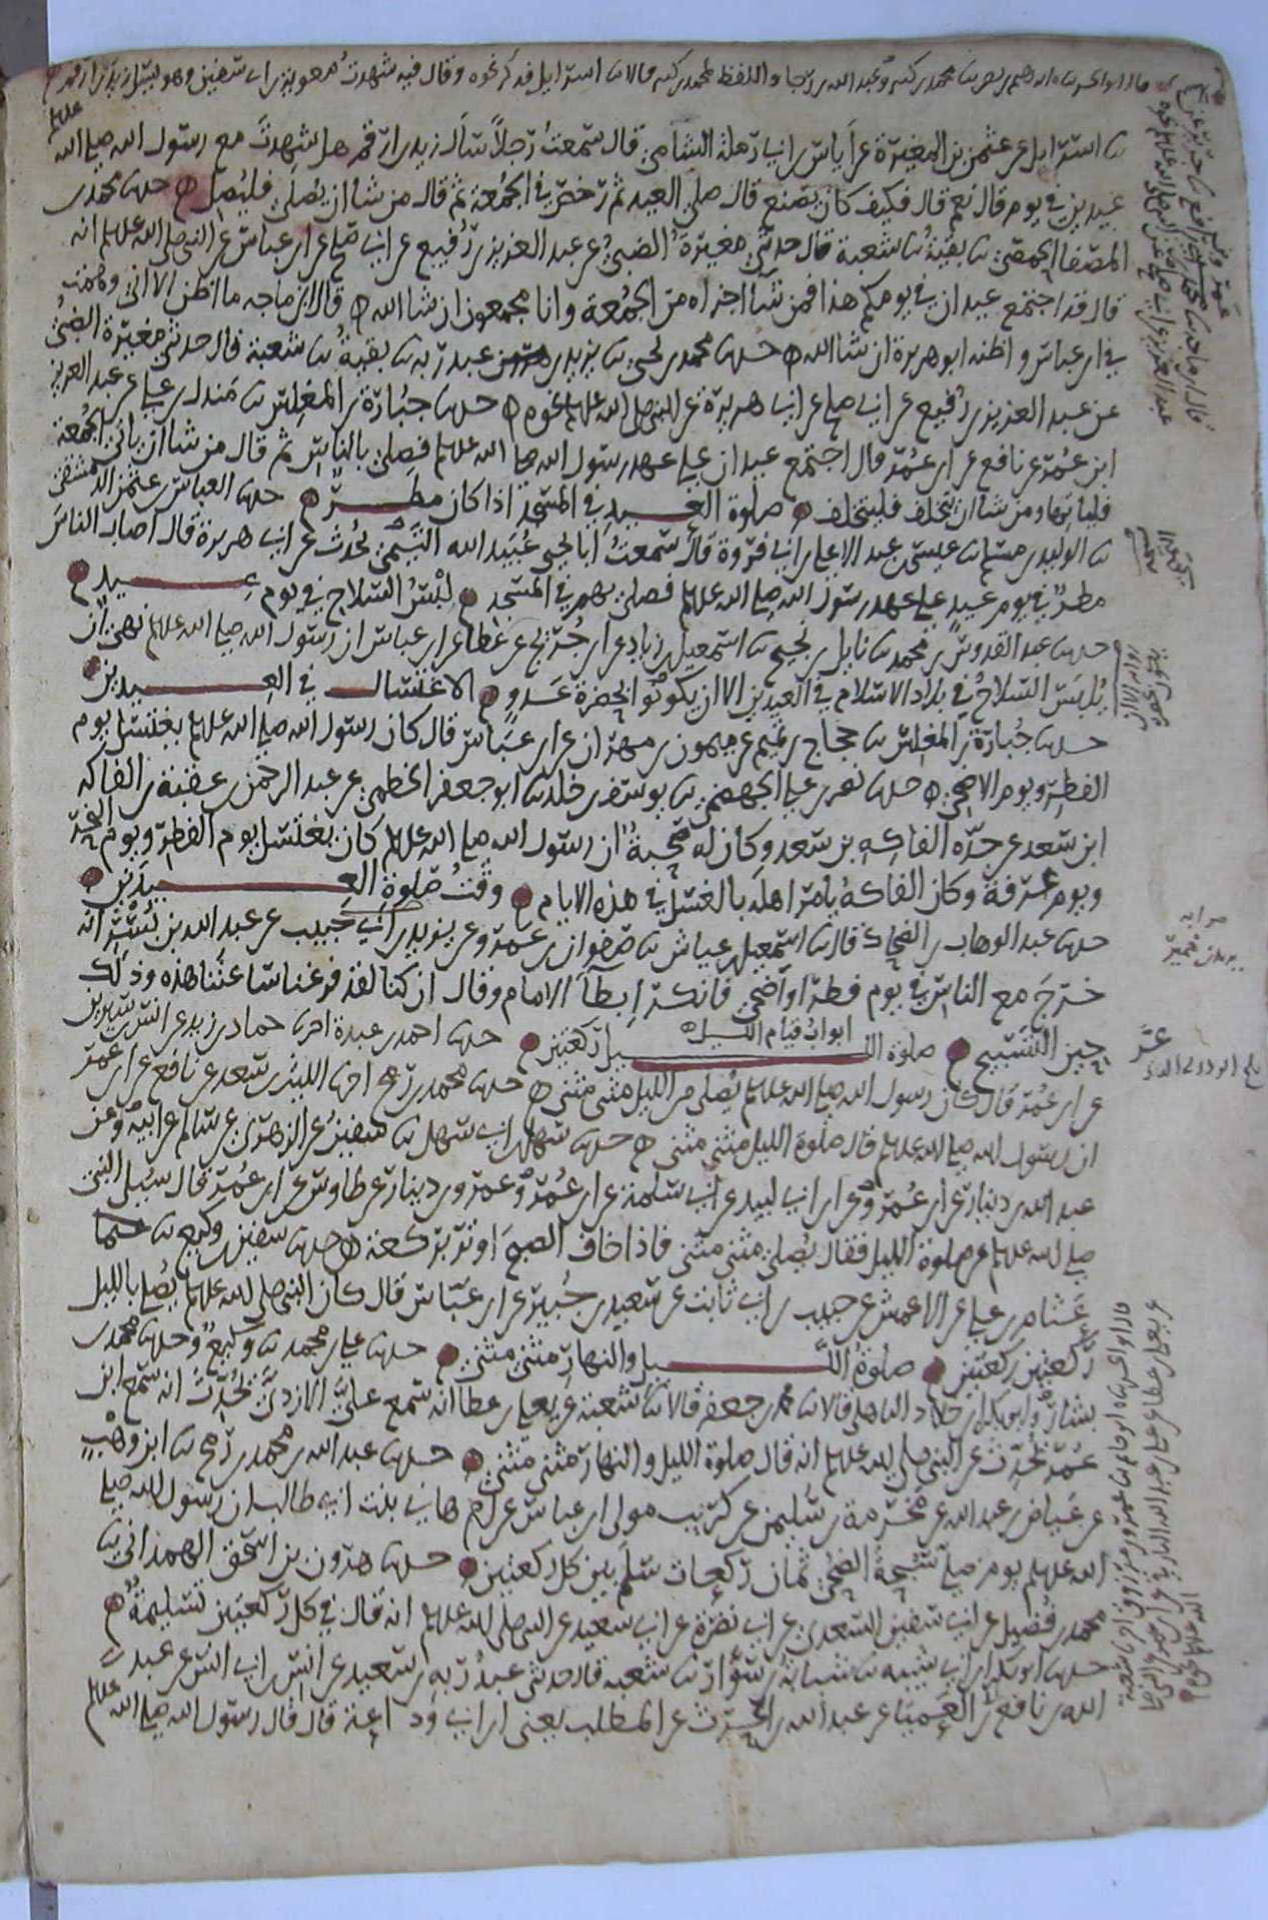 نا اسرايل عن عثمن بن المغيرة عن اياس بن ابي رملة الشامي قال سمعت رجلا سأل زيد بن ارقم هل شهدت مع رسول الله صلى الله عليه وسلم
عيدين في يوم قال نعم قال فكيف كان يصنع قال صلى العيد ثم رخص في الجمعة ثم قال من شا ان يصلي فليصل حدثنا محمد بن
المصفا الحمصي نا بقية نا شعبة قال حدثني مغيرة الضبي عن عبد العزيز بن رفيع عن ابي صالح عن ابن عباس عن النبي صلى الله عليه وسلم انه
قال قد اجتمع عيدان في يومكم هذا فمن شا اجزاه من الجمعة وانا مجمعون ان شا الله قال ابن ماجه ما اظن الا اني وهمت
في ابن عباس واظنه ابو هريرة ان شا الله حدثنا محمد بن يحيى نا يزيد بن عبد ربه نا بقية نا شعبة قال حدثني مغيرة الضبي
عن عبد العزيز بن رفيع عن ابي صالح عن ابي هريرة عن النبي صلى الله عليه وسلم نحوه حدثنا جبارة بن المغلس نا مندل بن علي عن عبد العزيز
ابن عمر عن نافع عن ابن عمر قال اجتمع عيدان على عهد رسول الله صلى الله عليه وسلم فصلى بالناس ثم قال من شا ان ياتي الجمعة
فلياتها ومن شا ان يتخلف فليتخلف صلوة العيد في المسجد اذا كان مطر حدثنا العباس بن عثمن الدمشقي
نا الوليد بن مسلم نا عيسى بن عبد الاعلى بن ابي فروة قال سمعت ابا يحيى عبيد الله التيمي يحدث عن ابي هريرة قال اصاب الناس
مطر في يوم عيد على عهد رسول الله صلى الله عليه وسلم فصلى بهم في المسجد لبس السلاح في يوم عيد
حدثنا عبد القدوس بن محمد نا نايل بن نجيح نا اسمعيل بن زياد عن ابن جريج عن عطا عن ابن عباس ان رسول الله صلى الله عليه وسلم نهى ان
يلبس السلاح في بلاد الاسلام في العيدين الا ان يكونوا بحضرة عدو الاغتسال في العيدين
حدثنا جبارة بن المغلس نا حجاج بن تميم عن ميمون بن مهران عن ابن عباس قال كان رسول الله صلى الله عليه وسلم يغتسل يوم
الفطر ويوم الاضحى حدثنا نصر بن علي الجهضمي نا يوسف بن خلد نا ابو جعفر الخطمي عن عبد الرحمن بن عقبة بن الفاكه
ابن سعد عن جده الفاكه بن سعد وكان له صحبة ان رسول الله صلى الله عليه وسلم كان يغتسل يوم الفطر ويوم النحر
ويوم عرفة وكان الفاكه يأمر اهله بالغسل في هذه الايام وقت صلوة العيدين
حدثنا عبد الوهاب بن الضحاك قال نا اسمعيل بن عياش نا صفوان بن عمرو عن يزيد بن خمير عن عبد الله بن بسر انه
خرج مع الناس في يوم فطر او اضحى فانكر ابطاء الامام وقال ان كنا لقد فرغنا ساعتنا هذه وذلك
حين التسبيح ابواب قيام الليل صلوة الليل ركعتين حدثنا احمد بن عبدة انا حماد بن زيد عن انس بن سيرين
عن ابن عمر قال كان رسول الله صلى الله عليه وسلم يصلي من الليل مثنى مثنى حدثنا محمد بن رمح انا الليث بن سعد عن نافع عن ابن عمر
ان رسول الله صلى الله عليه وسلم قال صلوة الليل مثنى مثنى حدثنا سهل بن ابي سهل نا سفين عن الزهري عن سالم عن ابيه وعن
عبد الله بن دينار عن ابن عمر وعن ابن ابي لبيد عن ابي سلمة عن ابن عمر وعمرو بن دينار عن طاوس عن ابن عمر قال سئل النبي
صلى الله عليه وسلم عن صلوة الليل فقال يصلي مثنى مثنى فاذا خاف الصبح اوتر بركعة حدثنا سفين بن وكيع نا
عثام بن علي عن الاعمش عن حبيب بن ابي ثابت عن سعيد بن جبير عن ابن عباس قال كان النبي صلى الله عليه وسلم يصلي بالليل
ركعتين ركعتين صلوة الليل والنهار مثنى مثنى حدثنا علي بن محمد نا وكيع وحدثنا محمد بن
بشار وابو بكر بن خلاد الباهلي قالا نا محمد بن جعفر قالا نا شعبة عن يعلى بن عطا انه سمع عليا الازدي يحدث انه سمع ابن
عمر يحدث عن النبي صلى الله عليه وسلم انه قال صلوة الليل والنهار مثنى مثنى حدثنا عبد الله بن محمد بن رمح نا ابن وهب
عن عياض بن عبد الله عن مخرمة بن سليمن عن كريب مولى ابن عباس عن ام هاني بنت ابي طالب ان رسول الله صلى
الله عليه وسلم يوم صلى سبحة الضحى ثمان ركعات سلم بين كل ركعتين حدثنا هرون بن اسحق الهمداني نا
محمد بن فضيل عن ابي سفين السعدي عن ابي نضرة عن ابي سعيد عن النبي صلى الله عليه وسلم انه قال في كل ركعتين تسليمة
حدثنا ابو بكر بن ابي شيبه نا شبابة بن سوار نا شعبة قال حدثني عبد ربه بن سعيد عن انس بن ابي انس عن عبد
الله بن نافع بن العميا عن عبد الله بن الحرث عن المطلب يعني ابن ابي وداعة قال قال رسول الله صلى الله عليه وسلم